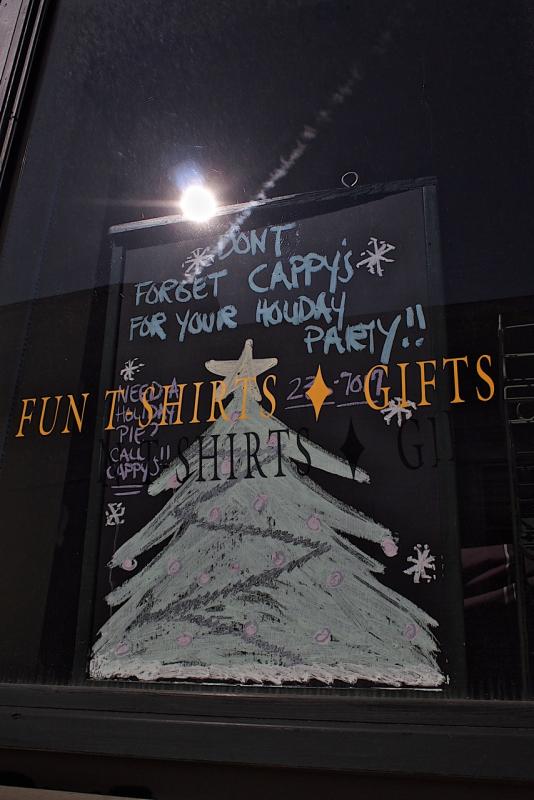 DONT
FORGET CAPPY'S
FOR YOUR HOLIDAY
PARTY!!
FUN T-SHIRTS ♦ GIFTS
NEED A
HOLIDAY
PIE?
CALL
CAPPY'S!!